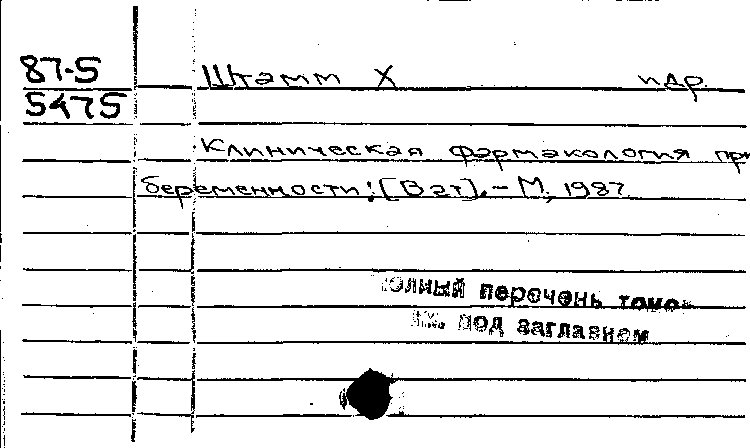 87-5
5475
Штамм Х и др.
Клиническая фармакология при
беременности: [В 2т]. – М, 1987
полный перечень томов
см. под заглавием